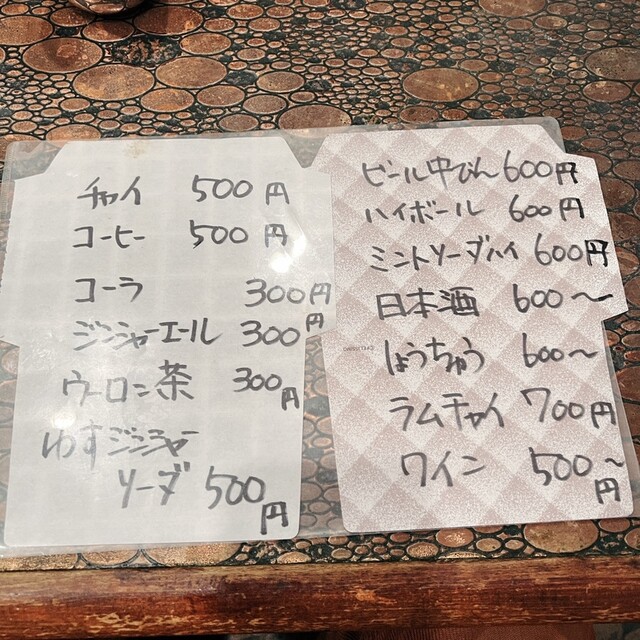 チャイ 500円
コーヒー 500円
コーラ 300円
ジンジャーエール 300円
ウーロン茶 300円
ゆずジンジャー
ソーダ 500円
ビール中びん 600円
ハイボール 600円
ミントソーダハイ 600円
日本酒 600〜
しょうちゅう 600〜
ラムチャイ 700円
ワイン 500〜円